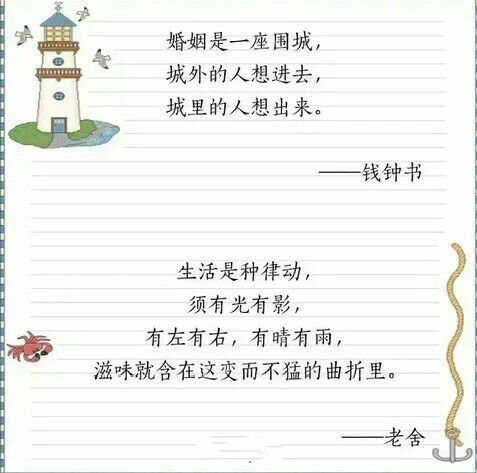 婚姻是一座围城，
城外的人想进去，
城里的人想出来。
——钱钟书
生活是种律动，
须有光有影，
有左有右，有晴有雨，
滋味就含在这变而不猛的曲折里。
——老舍